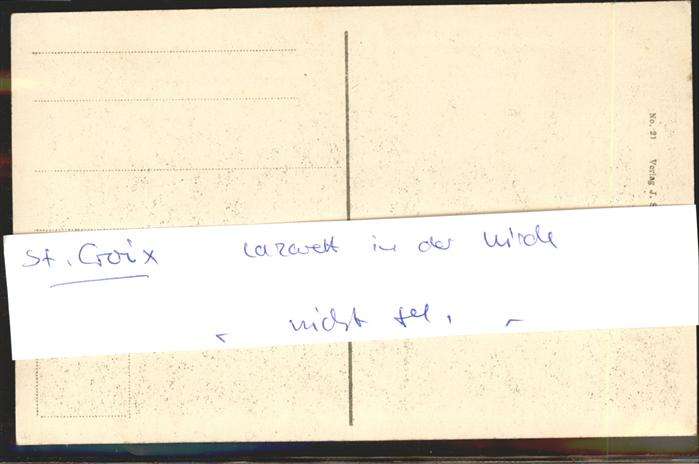 St. Croix Lazarett in der Kirche
nicht gel.
No. 21 Verlag J. S